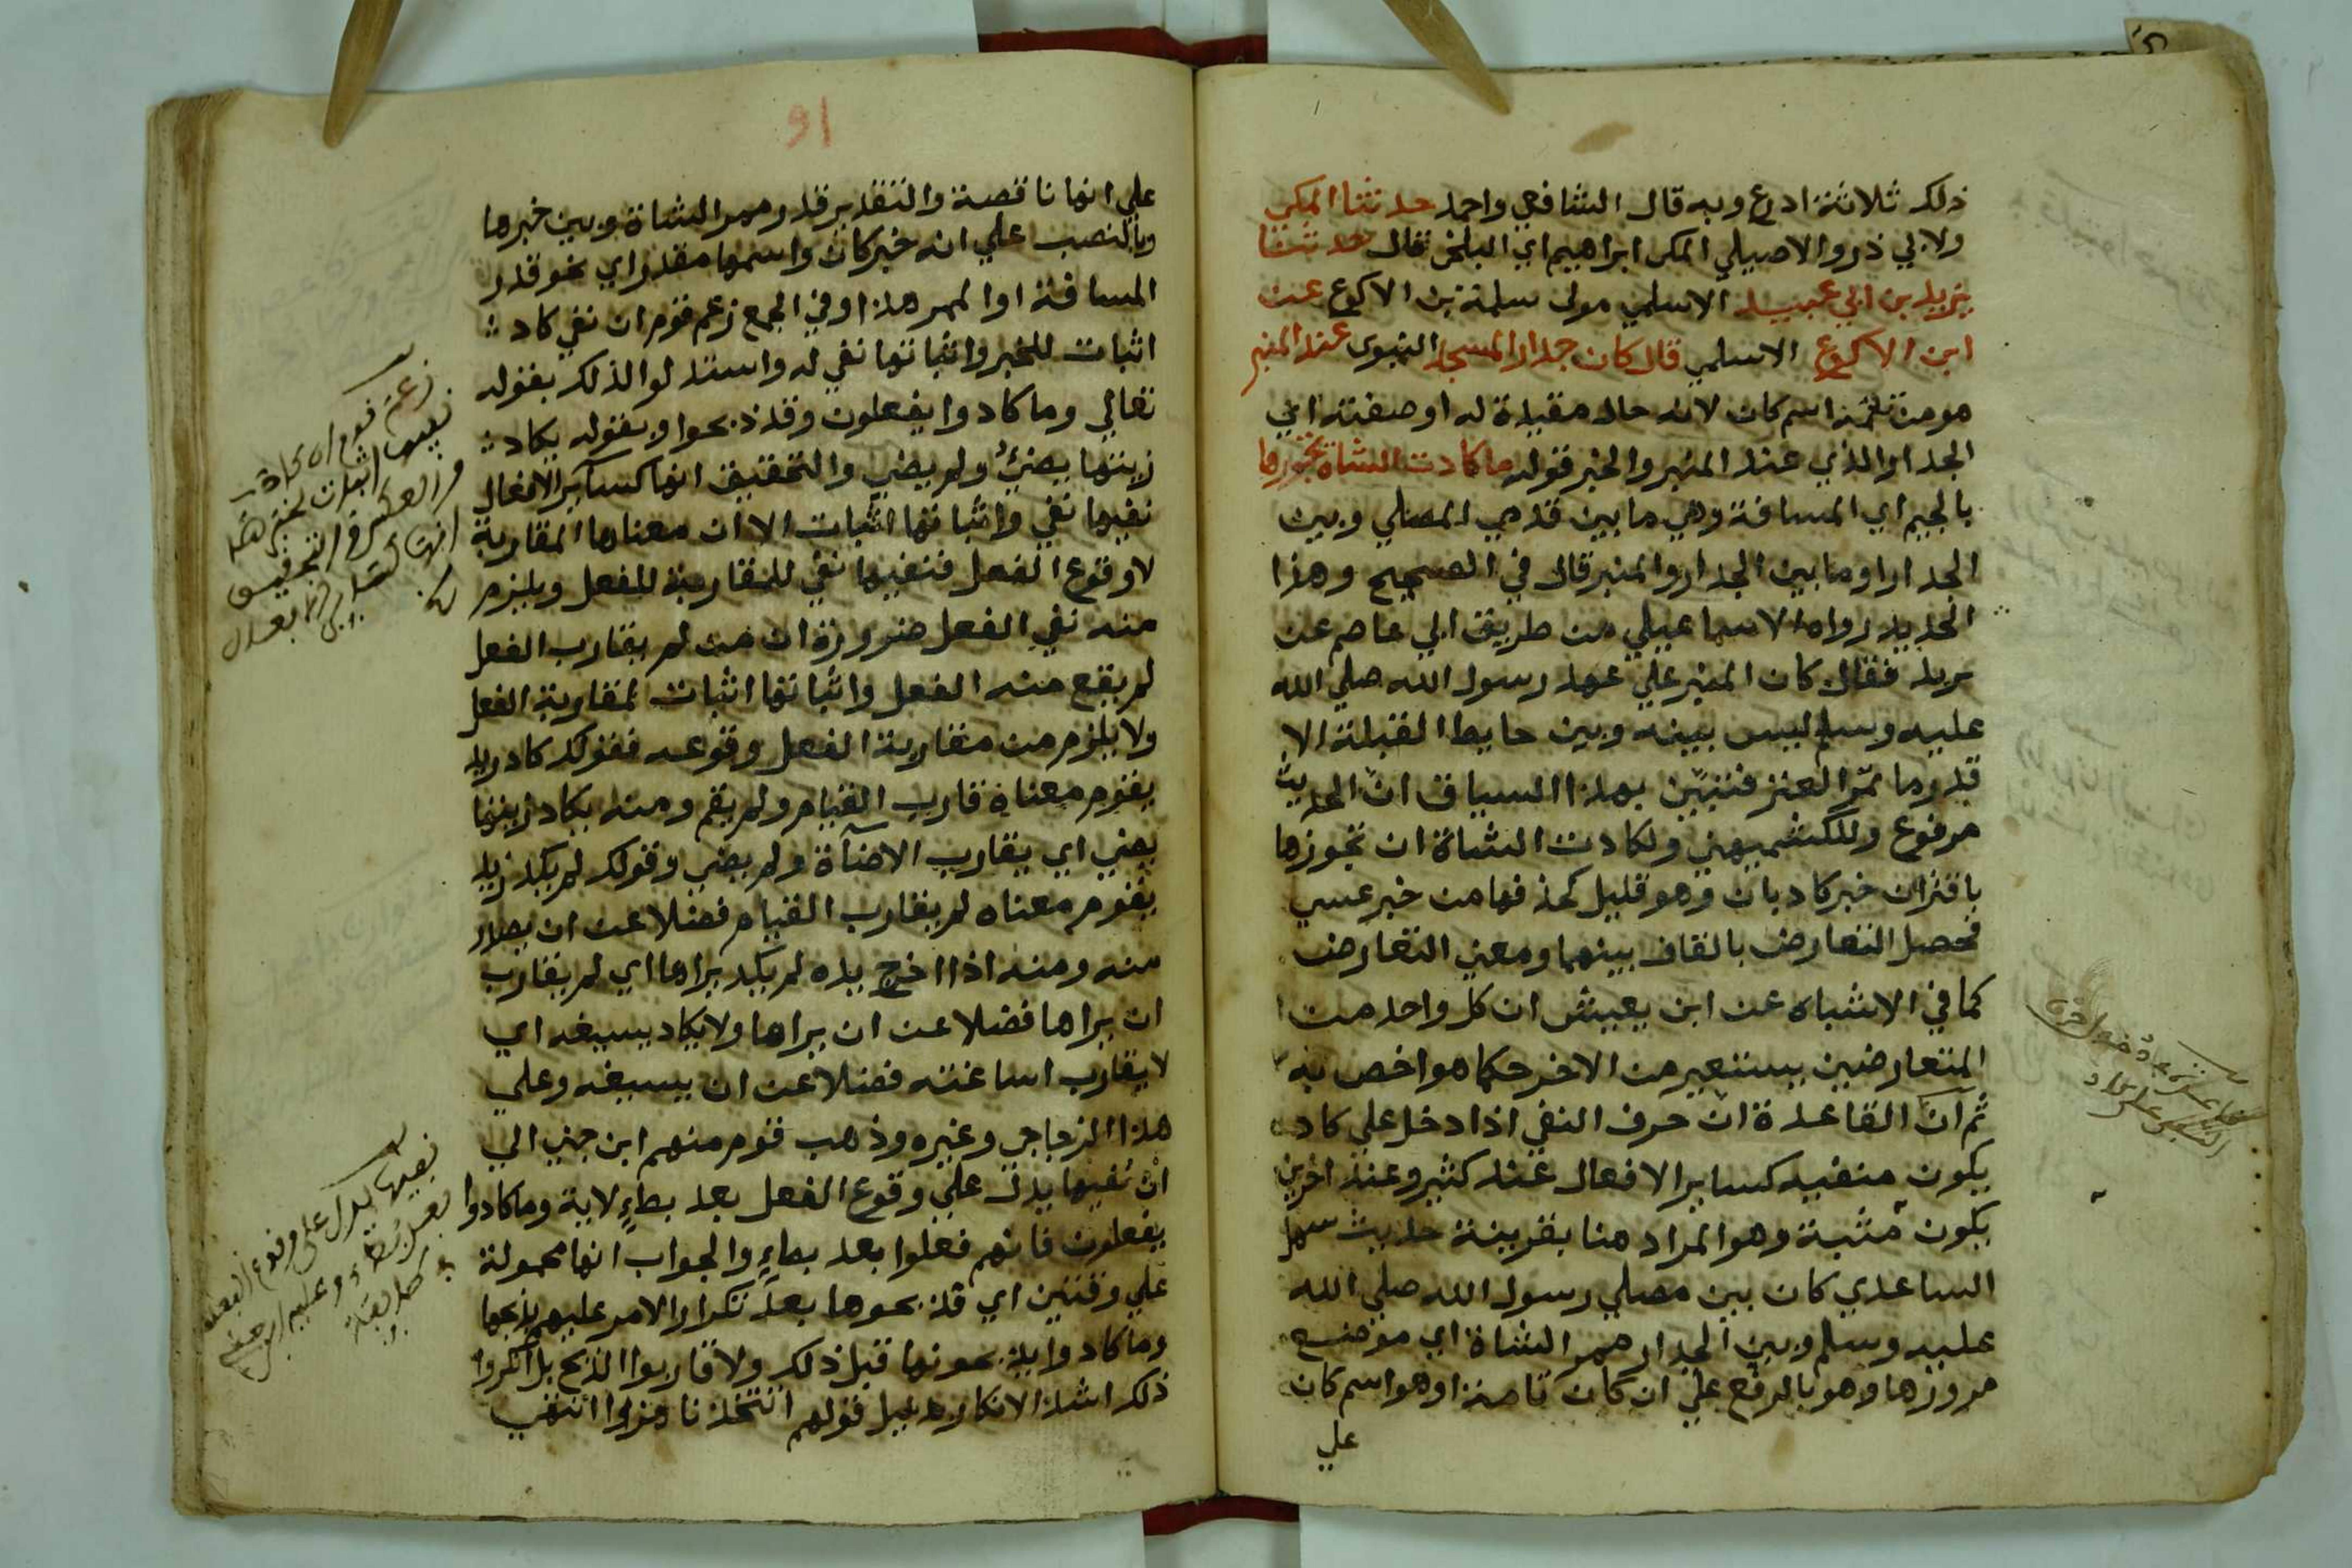 ذلك ثلاثة ادرع وبه قال الشافعي واحمد حدثنا المكي
ولابي ذر والاصيلي المكي ابراهيم اي البلخي قال حدثنا
يزيد بن ابي عبيد الاسلمي مولى سلمة بن الاكوع عن
ابن الاكوع الاسلمي قال كان جدار المسجد النبوي عند المنبر
هو من تتمة اسم كان لانه حال مقيدة له او صفته اي
الجدار الذي عند المنبر والخبر قوله ما كادت الشاة تجوزها
بالجيم اي المسافة وهي ما بين قدمي المصلي وبين
الجدار او ما بين الجدار والمنبر قال في الصحيح وهذا
الحديد رواه الاسماعيلي من طريق ابي عاصم عن
يريد فقال كان المنبر علي عهد رسول الله صلي الله
عليه وسلم ليس بينه وبين حايط القبلة الا
قدر ما تمر العنز فتبين بهذا السياق ان الحديث
مرفوع وللكشميهني ولكادت الشاة ان تجوزها
باقتران خبر كاد بان وهو قليل كحذفها من خبر عسي
فحصل التعارض بالقاف بينهما ومعني التعارض
كما في الاشباه عن ابن يعيش ان كل واحد من
المتعارضين يستعير من الاخر حكما هو اخص به
ثم ان القاعدة ان حرف النفي اذا دخل علي كاد
يكون منفيه كساير الافعال عند كثير وعند اخرين
يكون مثبتة وهو المراد هنا بقرينة حديث سهل
الساعدي كان بين مصلي رسول الله صلي الله
عليه وسلم وبين الجدار ممر الشاة اي موضع
مروزها وهو بالرفع علي ان كان تامة او هو اسم كان
علي
91
علي انها ناقصة والتقدير قدر ممر الشاة وبين خبرها
وبالنصب علي انه خبر كان واسمها مقدر اي نحو قدر
المسافة او الممر هذا وفي الجمع زعم قوم ان نفي كاد
اثبات للخبر واثباتها نفي له واستدلوا لذلك بقوله
تعالي وما كادوا يفعلون وقد ذبحوا وبقوله يكاد
زيتها يضيئ ولم يضي والتحقيق انها كساير الافعال
نفيها نفي واثباتها اثبات الا ان معناها المقاربة
لا وقوع الفعل فنفيها نفي للمقاربة للفعل ويلزم
منه نفي الفعل ضرورة ان من لم يقارب الفعل
لم يقع منه الفعل واثباتها اثبات لمقاربة الفعل
ولا يلزم من مقاربة الفعل وقوعه فقولك كاد زيد
يقوم معناه قارب القيام ولم يقم ومنه يكاد زيتها
يضي اي يقارب الاضاة ولم يضي وقولك لم يكد زيد
يقوم معناه لم يقارب القيام فضلا عن ان يصدر
منه ومنه اذا اخرج يده لم يكد يراها اي لم يقارب
ان يراها فضلا عن ان يراها ولا يكاد يسيغه اي
لا يقارب اساغته فضلا عن ان يسيغه وعلي
هذا الزجاجي وغيره وذهب قوم منهم ابن جني الي
ان نفيها يدل علي وقوع الفعل بعد بطاء لاية وما كادوا
يفعلون فانهم فعلوا بعد بطاء والجواب انها محمولة
علي وقتين اي قد بحوها بعد تكرار الامر عليهم بذبحها
وما كادوا يذبحونها قبل ذلك ولا قاربوا الذبح بل انكروا
ذلك اشد الانكار بدليل قولهم اتتخذنا هزوا انتهي
زعم قوم ان كاد
نفيها اثبات لخبرها
والعكس والتحقيق
انها كساير الافعال
نفيها يدل على وقوع الفعل
بعد بطاء وعليه ابن جني